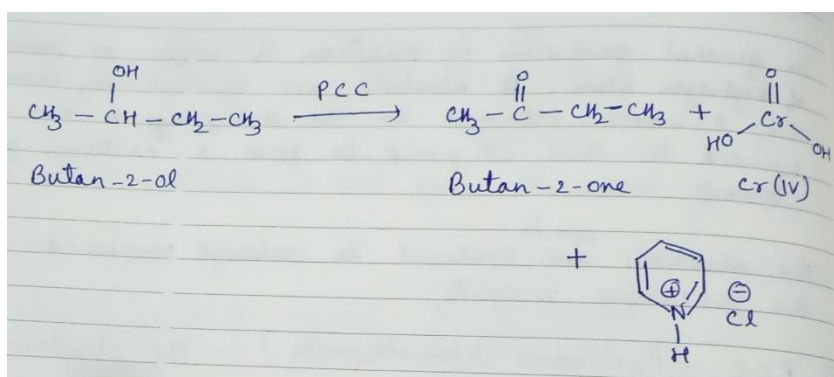 OH
CH3 – CH – CH2 – CH3 PCC → CH3 – C – CH2 – CH3 + Cr
O
O
HO
OH
Butan-2-ol Butan-2-one Cr(IV)
+
⊕ ⊖
N Cl
H